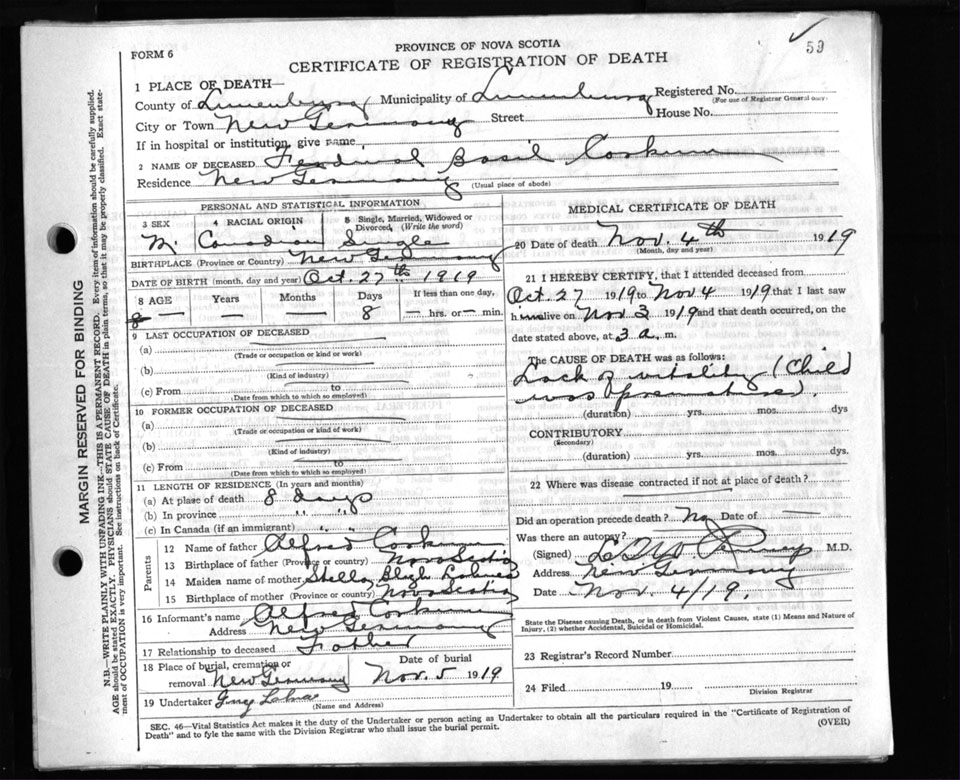 59
FORM 6
PROVINCE OF NOVA SCOTIA
CERTIFICATE OF REGISTRATION OF DEATH
1 PLACE OF DEATH—
County of Lunenburg Municipality of Lunenburg Registered No.
(For use of Registrar General only)
City or Town New Germany Street House No.
If in hospital or institution, give name
2 NAME OF DECEASED Basil Conkum
Residence New Germany (Usual place of abode)
PERSONAL AND STATISTICAL INFORMATION
3 SEX 4 RACIAL ORIGIN 5 Single, Married, Widowed or Divorced, (Write the word)
M. Canadian Single
BIRTHPLACE (Province or Country) New Germany
DATE OF BIRTH (month, day and year) Oct. 27th 1919
8 AGE Years Months Days If less than one day,
— — — 8 — hrs. or — min.
9 LAST OCCUPATION OF DECEASED
(a)
(Trade or occupation or kind or work)
(b)
(Kind of industry)
(c) From to
(Date from which to which so employed)
10 FORMER OCCUPATION OF DECEASED
(a)
(Trade or occupation or kind of work)
(b)
(Kind of industry)
(c) From to
(Date from which to which so employed)
11 LENGTH OF RESIDENCE (In years and months)
(a) At place of death 8 days
(b) In province " "
(c) In Canada (if an immigrant) " "
Parents
12 Name of father Alfred Conkum
13 Birthplace of father (Province or country) Nova Scotia
14 Maiden name of mother Stella
15 Birthplace of mother (Province or country) Nova Scotia
16 Informant's name Alfred Conkum
Address New Germany
17 Relationship to deceased Father
18 Place of burial, cremation or removal New Germany Date of burial Nov. 5 1919
19 Undertaker
(Name and Address)
MEDICAL CERTIFICATE OF DEATH
20 Date of death Nov. 4th 1919
(Month, day and year)
21 I HEREBY CERTIFY, that I attended deceased from
Oct 27 1919 to Nov 4 1919 that I last saw
him alive on Nov 3 1919 and that death occurred, on the
date stated above, at 3 a. m.
The CAUSE OF DEATH was as follows:
Lack of vitality (Child
was premature).
(duration) yrs. mos. dys
CONTRIBUTORY
(Secondary)
(duration) yrs. mos. dys.
22 Where was disease contracted if not at place of death?
Did an operation precede death? No Date of —
Was there an autopsy?
(Signed) M.D.
Address New Germany
Date Nov. 4/19.
State the Disease causing Death, or in death from Violent Causes, state (1) Means and Nature of
Injury, (2) whether Accidental, Suicidal or Homicidal.
23 Registrar's Record Number
24 Filed 19
Division Registrar
SEC. 46—Vital Statistics Act makes it the duty of the Undertaker or person acting as Undertaker to obtain all the particulars required in the "Certificate of Registration of
Death" and to fyle the same with the Division Registrar who shall issue the burial permit.
(OVER)
MARGIN RESERVED FOR BINDING
N.B.—WRITE PLAINLY WITH UNFADING INK—THIS IS A PERMANENT RECORD. Every item of information should be carefully supplied.
AGE should be stated EXACTLY. PHYSICIANS should STATE CAUSE OF DEATH in plain terms, so that it may be properly classified. Exact state-
ment of OCCUPATION is very important. See instructions on back of Certificate.